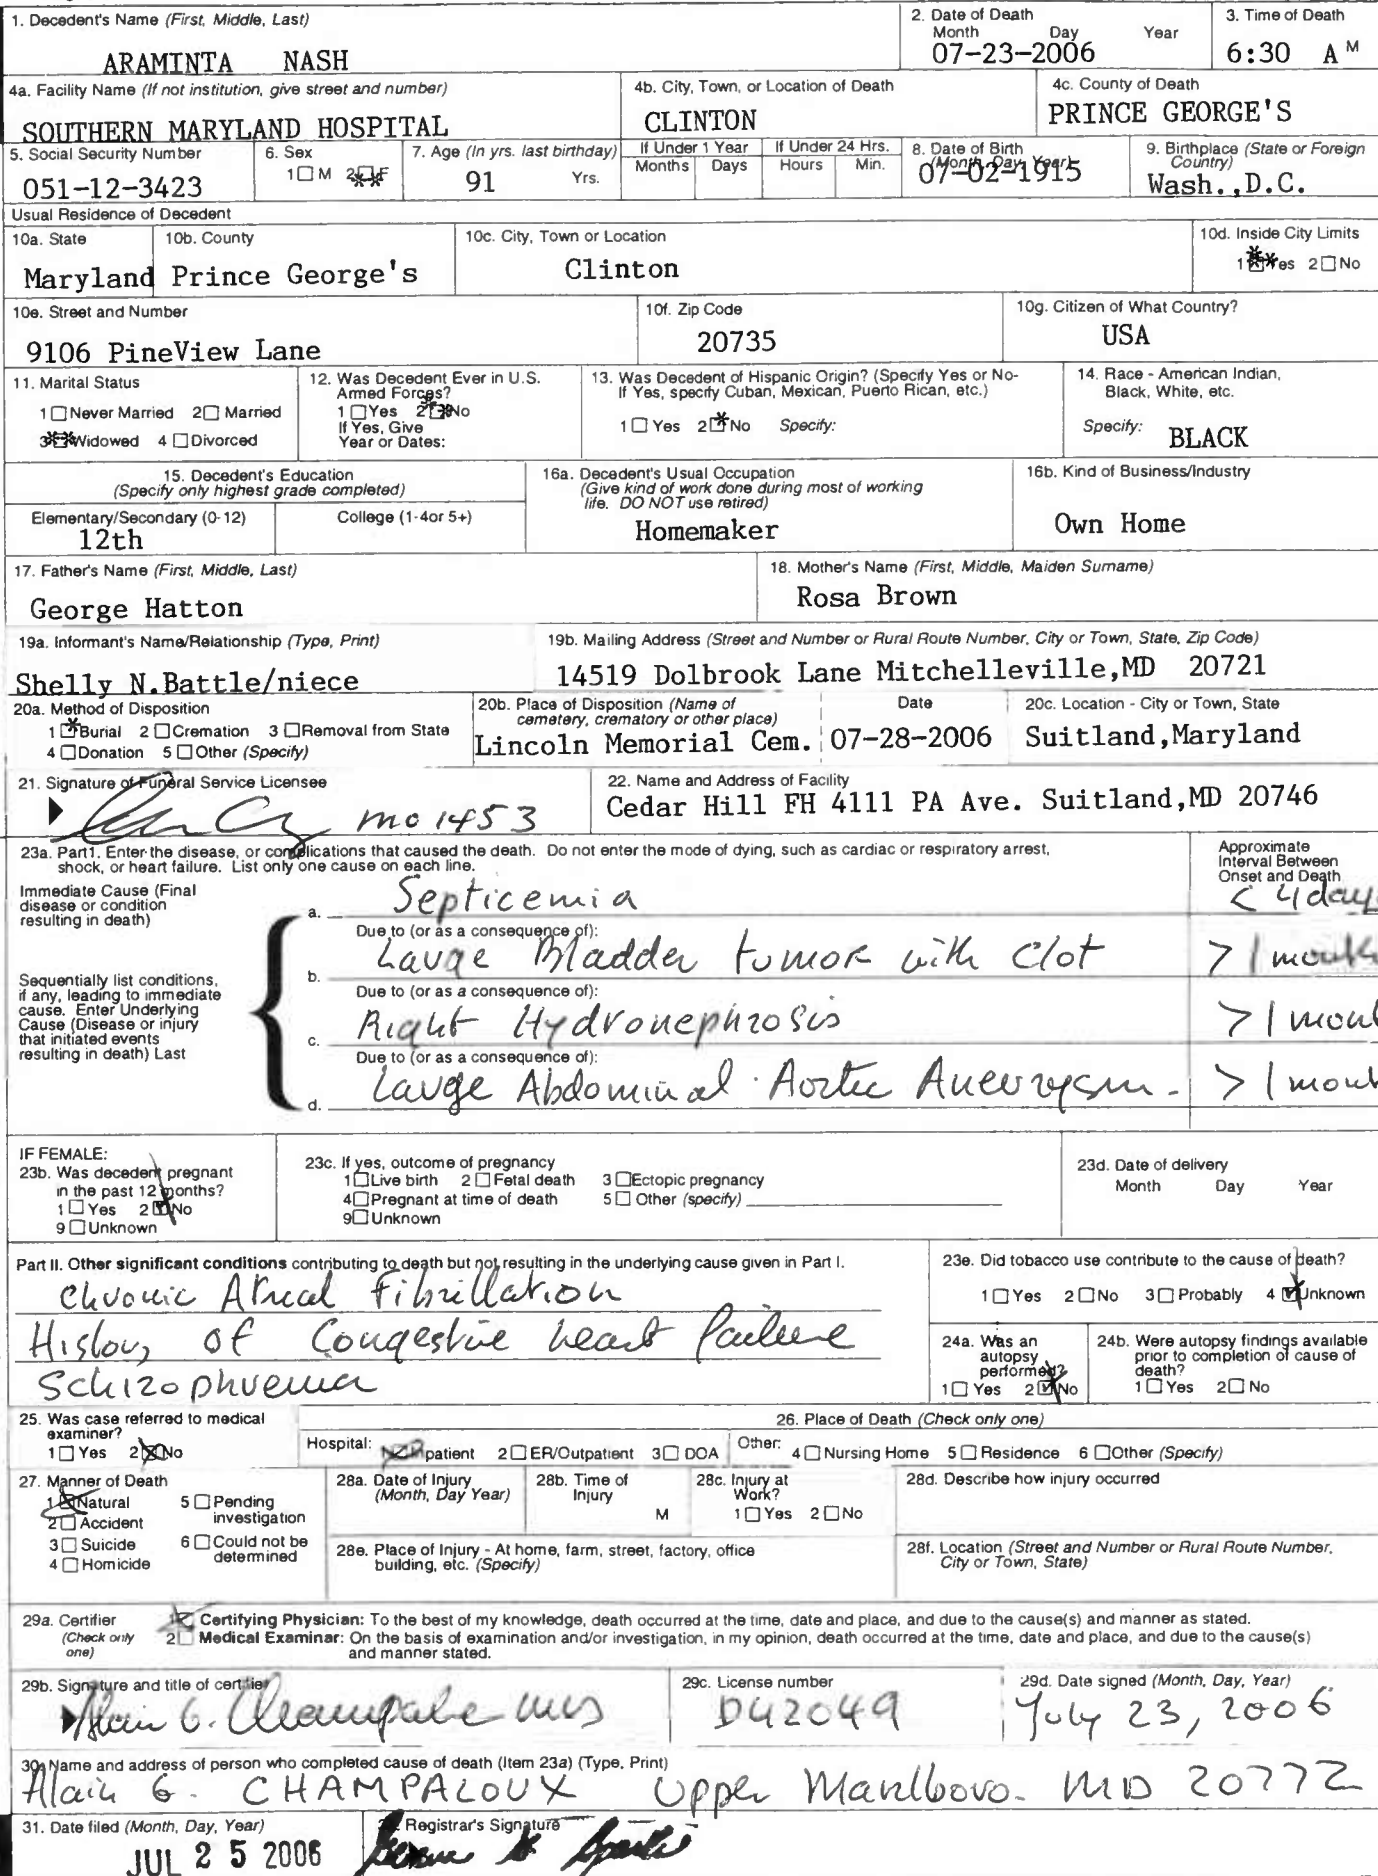 1. Decedent's Name (First, Middle, Last)
ARAMINTA NASH
2. Date of Death
Month Day Year
07-23-2006
3. Time of Death
6:30 A M
4a. Facility Name (If not institution, give street and number)
SOUTHERN MARYLAND HOSPITAL
4b. City, Town, or Location of Death
CLINTON
4c. County of Death
PRINCE GEORGE'S
5. Social Security Number
051-12-3423
6. Sex
1 M 2 F
7. Age (In yrs. last birthday)
91 Yrs.
If Under 1 Year
Months Days
If Under 24 Hrs.
Hours Min.
8. Date of Birth
(Month, Day, Year)
07-02-1915
9. Birthplace (State or Foreign
Country)
Wash.,D.C.
Usual Residence of Decedent
10a. State
Maryland
10b. County
Prince George's
10c. City, Town or Location
Clinton
10d. Inside City Limits
1 Yes 2 No
10e. Street and Number
9106 PineView Lane
10f. Zip Code
20735
10g. Citizen of What Country?
USA
11. Marital Status
1 Never Married 2 Married
3 Widowed 4 Divorced
12. Was Decedent Ever in U.S.
Armed Forces?
1 Yes 2 No
If Yes, Give
Year or Dates:
13. Was Decedent of Hispanic Origin? (Specify Yes or No-
If Yes, specify Cuban, Mexican, Puerto Rican, etc.)
1 Yes 2 No Specify:
14. Race - American Indian,
Black, White, etc.
Specify: BLACK
15. Decedent's Education
(Specify only highest grade completed)
Elementary/Secondary (0-12)
12th
College (1-4or 5+)
16a. Decedent's Usual Occupation
(Give kind of work done during most of working
life. DO NOT use retired)
Homemaker
16b. Kind of Business/Industry
Own Home
17. Father's Name (First, Middle, Last)
George Hatton
18. Mother's Name (First, Middle, Maiden Surname)
Rosa Brown
19a. Informant's Name/Relationship (Type, Print)
Shelly N.Battle/niece
19b. Mailing Address (Street and Number or Rural Route Number, City or Town, State, Zip Code)
14519 Dolbrook Lane Mitchelleville,MD 20721
20a. Method of Disposition
1 Burial 2 Cremation 3 Removal from State
4 Donation 5 Other (Specify)
20b. Place of Disposition (Name of
cemetery, crematory or other place)
Lincoln Memorial Cem.
Date
07-28-2006
20c. Location - City or Town, State
Suitland,Maryland
21. Signature of Funeral Service Licensee
mo 1453
22. Name and Address of Facility
Cedar Hill FH 4111 PA Ave. Suitland,MD 20746
23a. Part1. Enter the disease, or complications that caused the death. Do not enter the mode of dying, such as cardiac or respiratory arrest,
shock, or heart failure. List only one cause on each line.
Approximate
Interval Between
Onset and Death
Immediate Cause (Final
disease or condition
resulting in death)
a. Septicemia
< 4 day
Due to (or as a consequence of):
Sequentially list conditions,
if any, leading to immediate
cause. Enter Underlying
Cause (Disease or injury
that initiated events
resulting in death) Last
b. Large Bladder tumor with clot
> 1 month
Due to (or as a consequence of):
c. Right Hydronephrosis
> 1 mont
Due to (or as a consequence of):
d. Large Abdominal Aortic Aneurysm.
> 1 mont
IF FEMALE:
23b. Was decedent pregnant
in the past 12 months?
1 Yes 2 No
9 Unknown
23c. If yes, outcome of pregnancy
1 Live birth 2 Fetal death 3 Ectopic pregnancy
4 Pregnant at time of death 5 Other (specify)
9 Unknown
23d. Date of delivery
Month Day Year
Part II. Other significant conditions contributing to death but not resulting in the underlying cause given in Part I.
Chronic Atrial Fibrillation
History of Congestive heart failure
Schizophrenia
23e. Did tobacco use contribute to the cause of death?
1 Yes 2 No 3 Probably 4 Unknown
24a. Was an
autopsy
performed?
1 Yes 2 No
24b. Were autopsy findings available
prior to completion of cause of
death?
1 Yes 2 No
25. Was case referred to medical
examiner?
1 Yes 2 No
26. Place of Death (Check only one)
Hospital: Inpatient 2 ER/Outpatient 3 DOA Other: 4 Nursing Home 5 Residence 6 Other (Specify)
27. Manner of Death
1 Natural 5 Pending
investigation
2 Accident
3 Suicide 6 Could not be
determined
4 Homicide
28a. Date of Injury
(Month, Day Year)
28b. Time of
Injury
M
28c. Injury at
Work?
1 Yes 2 No
28d. Describe how injury occurred
28e. Place of Injury - At home, farm, street, factory, office
building, etc. (Specify)
28f. Location (Street and Number or Rural Route Number,
City or Town, State)
29a. Certifier
(Check only
one)
Certifying Physician: To the best of my knowledge, death occurred at the time, date and place, and due to the cause(s) and manner as stated.
2 Medical Examinar: On the basis of examination and/or investigation, in my opinion, death occurred at the time, date and place, and due to the cause(s)
and manner stated.
29b. Signature and title of certifier
Alain G.
29c. License number
D42049
29d. Date signed (Month, Day, Year)
July 23, 2006
30. Name and address of person who completed cause of death (Item 23a) (Type, Print)
Alain G. CHAMPALOUX Upper Marlboro. MD 20772
31. Date filed (Month, Day, Year)
JUL 25 2006
Registrar's Signature